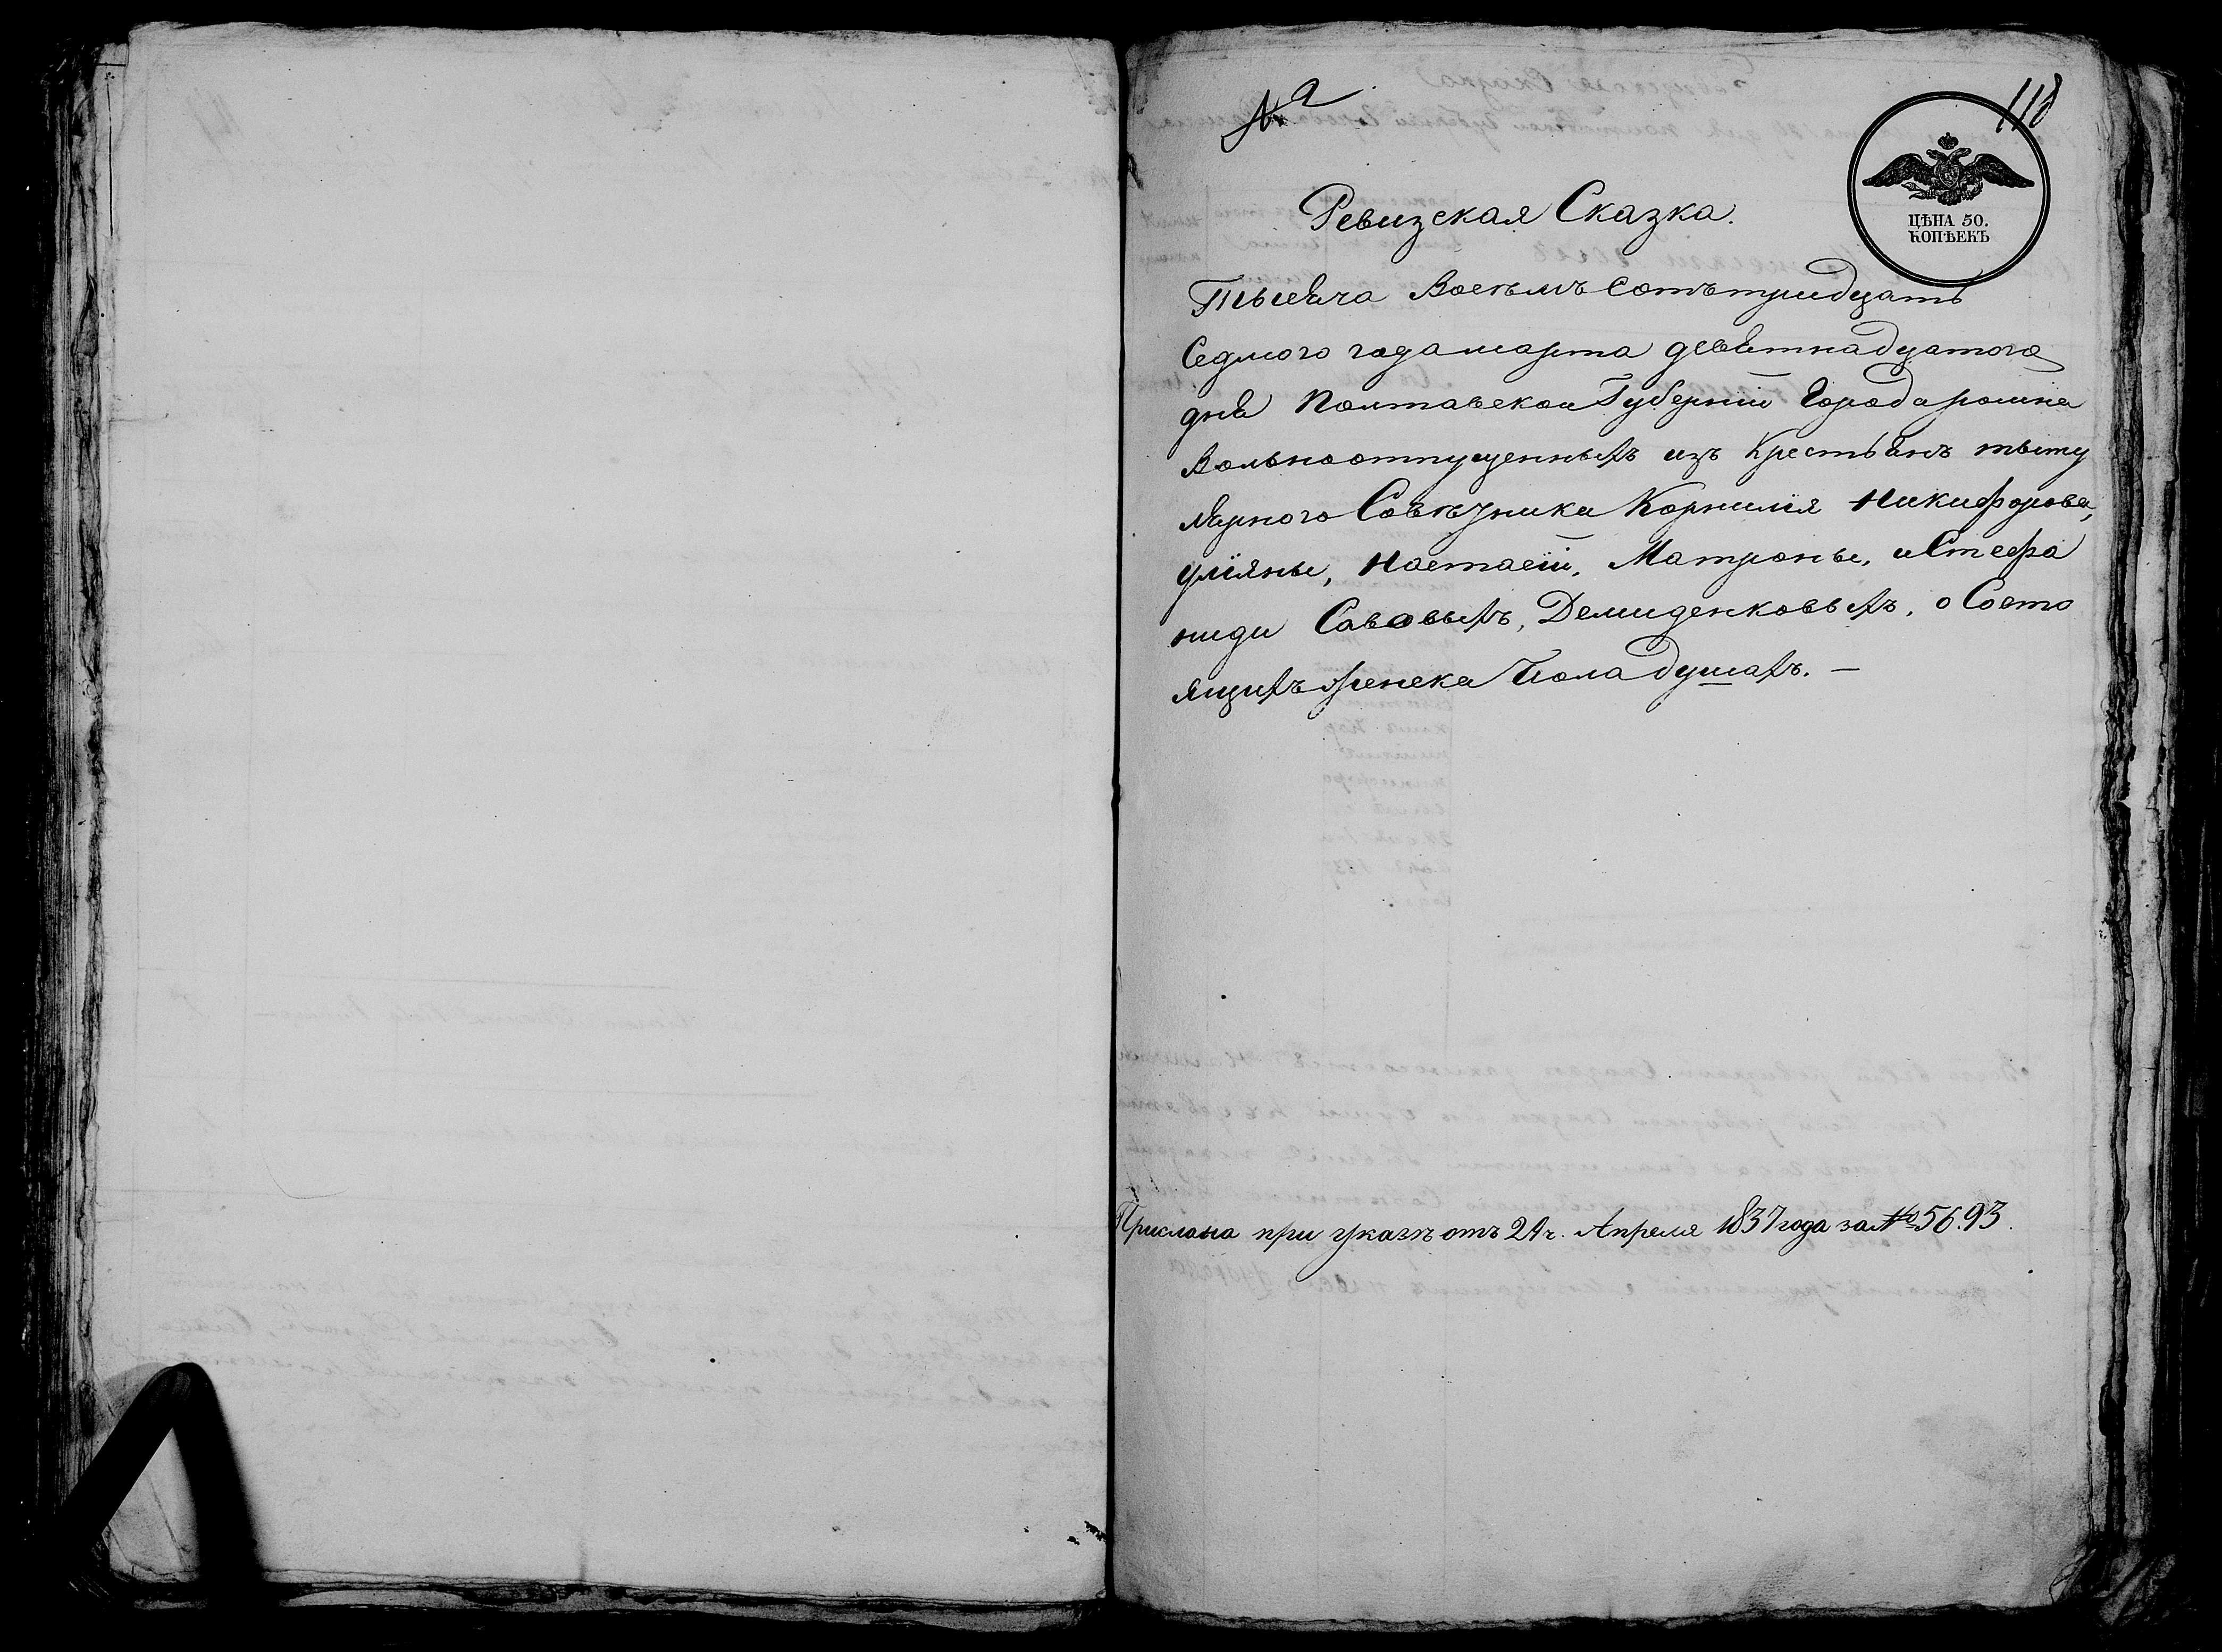 № 2
118
ЦѢНА 50.
КОПѢЕКЪ
Ревизская Сказка.
Тысяча Восемъ Сотъ тридцать
Седмого года марта девятнадцатого
дня Полтавской Губерніи Города ромна
Вольноотпущенныхъ изъ Крестьянъ титу
лярного Совѣтника Корнилія Никифорова,
Уліяны, Настасіи, Матроны, и Стефа
ниди Савовыхъ, Демиденковыхъ, о Состо
ящихъ женска Пола душахъ. —
Прислана при указѣ отъ 24 ч. Апреля 1837 года за № 56.93.